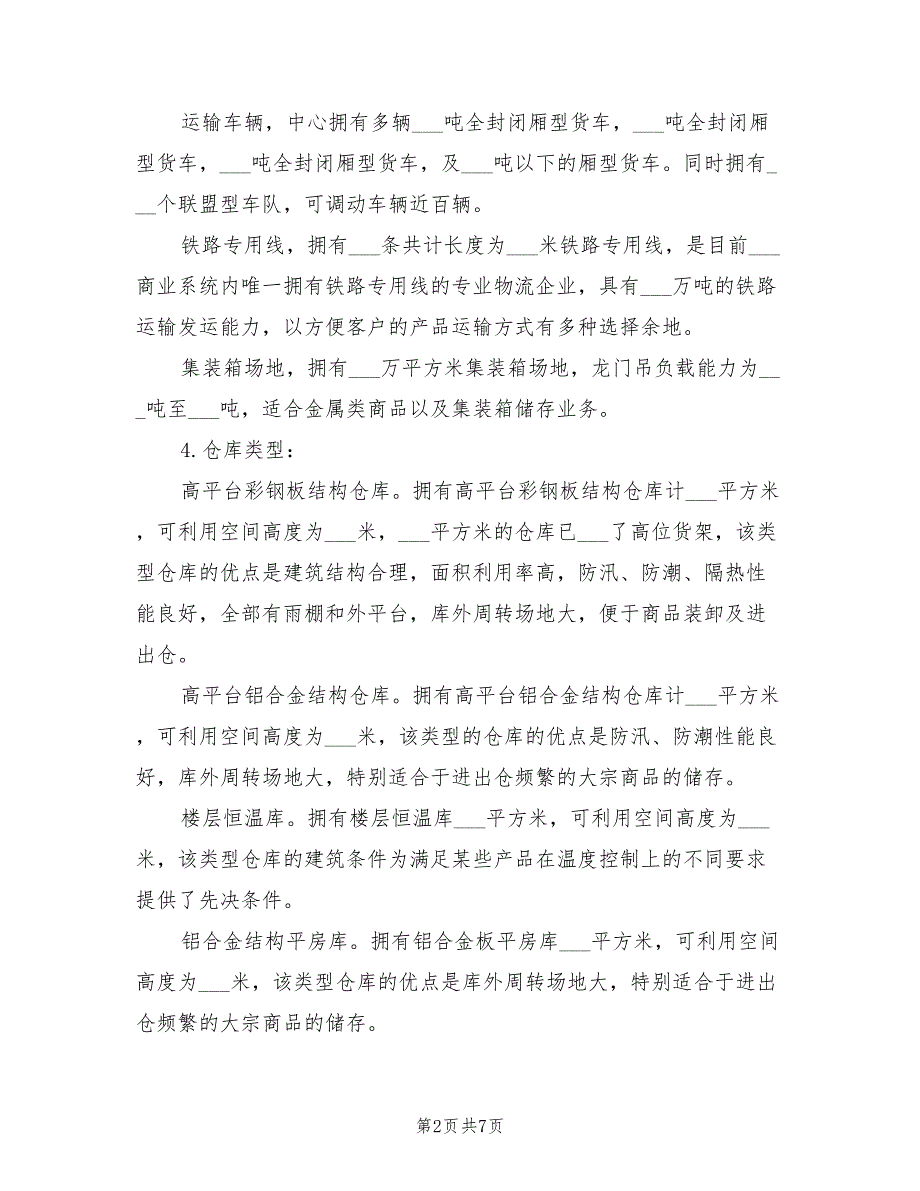 运输车辆，中心拥有多辆___吨全封闭厢型货车，___吨全封闭厢
型货车，___吨全封闭厢型货车，及___吨以下的厢型货车。同时拥有_
__个联盟型车队，可调动车辆近百辆。
铁路专用线，拥有___条共计长度为___米铁路专用线，是目前___
商业系统内唯一拥有铁路专用线的专业物流企业，具有___万吨的铁路
运输发运能力，以方便客户的产品运输方式有多种选择余地。
集装箱场地，拥有___万平方米集装箱场地，龙门吊负载能力为__
_吨至___吨，适合金属类商品以及集装箱储存业务。
4.仓库类型：
高平台彩钢板结构仓库。拥有高平台彩钢板结构仓库计___平方米
，可利用空间高度为___米，___平方米的仓库已___了高位货架，该类
型仓库的优点是建筑结构合理，面积利用率高，防汛、防潮、隔热性
能良好，全部有雨棚和外平台，库外周转场地大，便于商品装卸及进
出仓。
高平台铝合金结构仓库。拥有高平台铝合金结构仓库计___平方米
，可利用空间高度为___米，该类型的仓库的优点是防汛、防潮性能良
好，库外周转场地大，特别适合于进出仓频繁的大宗商品的储存。
楼层恒温库。拥有楼层恒温库___平方米，可利用空间高度为___
米，该类型仓库的建筑条件为满足某些产品在温度控制上的不同要求
提供了先决条件。
铝合金结构平房库。拥有铝合金板平房库___平方米，可利用空间
高度为___米，该类型仓库的优点是库外周转场地大，特别适合于进出
仓频繁的大宗商品的储存。
第2页共7页